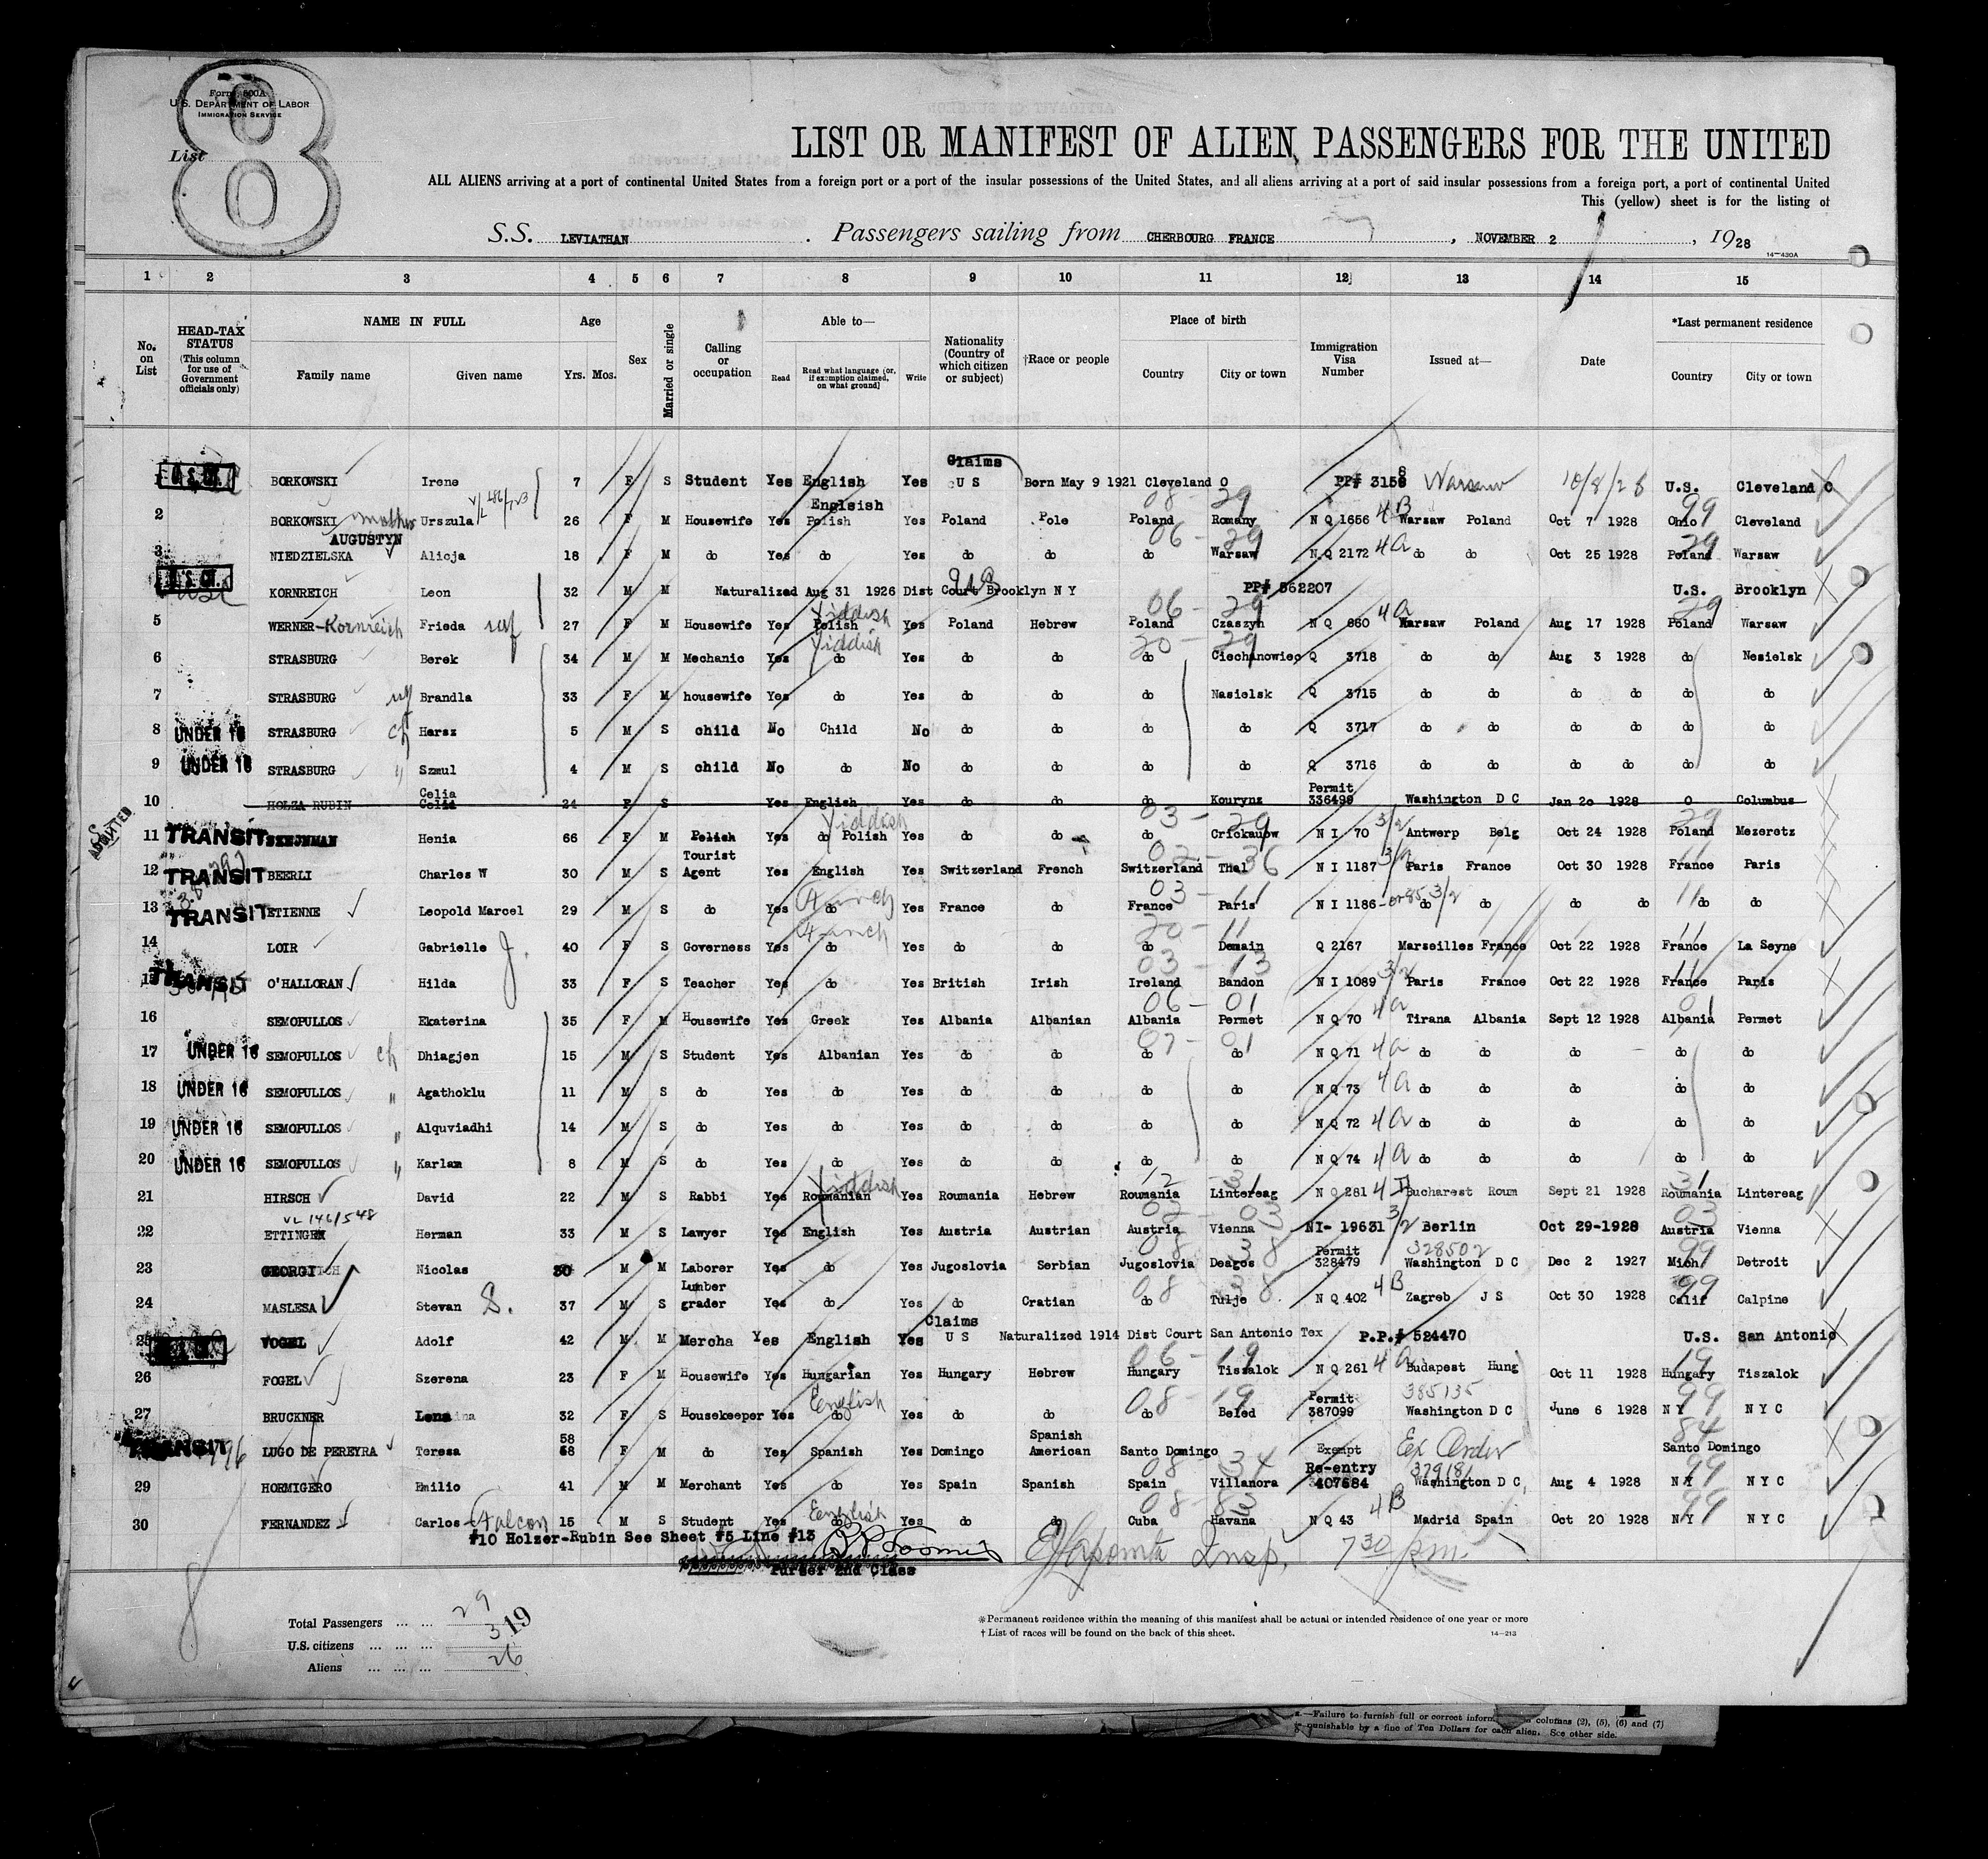 Form 500A
U.S. DEPARTMENT OF LABOR
IMMIGRATION SERVICE
List 8
LIST OR MANIFEST OF ALIEN PASSENGERS FOR THE UNITED
ALL ALIENS arriving at a port of continental United States from a foreign port or a port of the insular possessions of the United States, and all aliens arriving at a port of said insular possessions from a foreign port, a port of continental United
This (yellow) sheet is for the listing of
S.S. LEVIATHAN . Passengers sailing from CHERBOURG FRANCE , NOVEMBER 2 , 1928
14—430A
1 2 3 4 5 6 7 8 9 10 11 12 13 14 15
No. on List
HEAD-TAX STATUS (This column for use of Government officials only)
NAME IN FULL
Family name Given name
Age
Yrs. Mos.
Sex
Married or single
Calling or occupation
Able to—
Read
Read what language [or, if exemption claimed, on what ground]
Write
Nationality (Country of which citizen or subject)
†Race or people
Place of birth
Country City or town
Immigration Visa Number
Issued at—
Date
*Last permanent residence
Country City or town
Claims
BORKOWSKI Irene 7 F S Student Yes English Yes U S Born May 9 1921 Cleveland O PP# 3158 Warsaw 10/8/28 U.S. Cleveland O
Englsish 08-29 99
2 BORKOWSKI mother Urszula 26 F M Housewife Yes Polish Yes Poland Pole Poland Romany N Q 1656 4B Warsaw Poland Oct 7 1928 Ohio Cleveland
AUGUSTYN 06-29 29
3 NIEDZIELSKA Alicja 18 F M do Yes do Yes do do do Warsaw N Q 2172 4a do do Oct 25 1928 Poland Warsaw
KORNREICH Leon 32 M M Naturalized Aug 31 1926 Dist Court Brooklyn N Y PP# 562207 U.S. Brooklyn
Yiddish 06-29 29
5 WERNER-Kornreich Frieda wf 27 F M Housewife Yes Polish Yes Poland Hebrew Poland Czaszyn N Q 660 4a Warsaw Poland Aug 17 1928 Poland Warsaw
Yiddish 20-29
6 STRASBURG Berek 34 M M Mechanic Yes do Yes do do do Ciechanowiec Q 3718 do do Aug 3 1928 do Nesielsk
7 STRASBURG wf Brandla 33 F M housewife Yes do Yes do do do Nasielsk Q 3715 do do do do do do
8 UNDER 16 STRASBURG ch Hersz 5 M S child No Child No do do do do Q 3717 do do do do do do
9 UNDER 16 STRASBURG " Szmul 4 M S child No do No do do do do Q 3716 do do do do do do
Celia Permit
10 HOLZA RUBIN Celia 24 F S Yes English Yes do do do Kourynz 336499 Washington D C Jan 20 1928 O Columbus
ADMITTED
Yiddish 03-29 29
11 TRANSIT Henia 66 F M Polish Yes do Polish Yes do do do Crickaupw N I 70 3/2 Antwerp Belg Oct 24 1928 Poland Mezeretz
Tourist 02-36 11
12 TRANSIT BEERLI Charles W 30 M S Agent Yes English Yes Switzerland French Switzerland Thal N I 1187 3/2 Paris France Oct 30 1928 France Paris
French 03-11 11
13 TRANSIT ETIENNE Leopold Marcel 29 M S do Yes do Yes France do France Paris N I 1186 3/2 do do do do do do
French 20-11 11
14 LOIR Gabrielle J. 40 F S Governess Yes do Yes do do do Demain Q 2167 Marseilles France Oct 22 1928 France La Seyne
03-13 11
15 TRANSIT O'HALLORAN Hilda 33 F S Teacher Yes do Yes British Irish Ireland Bandon N I 1089 3/2 Paris France Oct 22 1928 France Paris
06-01 01
16 SEMOPULLOS Ekaterina 35 F M Housewife Yes Greek Yes Albania Albanian Albania Permet N Q 70 4a Tirana Albania Sept 12 1928 Albania Permet
07-01
17 UNDER 16 SEMOPULLOS ch Dhiagjen 15 M S Student Yes Albanian Yes do do do do N Q 71 4a do do do do do
18 UNDER 16 SEMOPULLOS " Agathoklu 11 M S do Yes do Yes do do do do N Q 73 4a do do do do do
19 UNDER 16 SEMOPULLOS " Alquviadhi 14 M S do Yes do Yes do do do do N Q 72 4a do do do do do
20 UNDER 16 SEMOPULLOS " Karlam 8 M S do Yes do Yes do do do do N Q 74 4a do do do do do
Yiddish 12-31 31
21 HIRSCH David 22 M S Rabbi Yes Roumanian Yes Roumania Hebrew Roumania Lintereag N Q 281 4 Bucharest Roum Sept 21 1928 Roumania Lintereag
VL 146/548 02-03 03
22 ETTINGEN Herman 33 M S Lawyer Yes English Yes Austria Austrian Austria Vienna NI- 19631 3/2 Berlin Oct 29-1928 Austria Vienna
08 38 Permit 328502 99
23 GEORGITCH Nicolas 30 M M Laborer Yes do Yes Jugoslovia Serbian Jugoslovia Deagos 328479 Washington D C Dec 2 1927 Mich Detroit
Lumber 08 38 99
24 MASLESA Stevan S. 37 M S grader Yes do Yes do Cratian do Tulje N Q 402 4B Zagreb J S Oct 30 1928 Calif Calpine
Claims
25 VOGEL Adolf 42 M M Mercha Yes English Yes U S Naturalized 1914 Dist Court San Antonio Tex P.P.# 524470 U.S. San Antonio
06-19 19
26 FOGEL Szerena 23 F M Housewife Yes Hungarian Yes Hungary Hebrew Hungary Tiszalok N Q 261 4a Budapest Hung Oct 11 1928 Hungary Tiszalok
English 08-19 Permit 385135 99
27 BRUCKNER Lena 32 F S Housekeeper Yes do Yes do do do Beled 387099 Washington D C June 6 1928 N Y N Y C
58 Spanish 84
TRANSIT LUGO DE PEREYRA Teresa 68 F M do Yes Spanish Yes Domingo American Santo Domingo Exempt Ex Order Santo Domingo
08-34 Re-entry 379181 99
29 HORMIGERO Emilio 41 M M Merchant Yes do Yes Spain Spanish Spain Villanora 407684 Washington D C, Aug 4 1928 N Y N Y C
English 08-83 99
30 FERNANDEZ Carlos-Falcon 15 M S Student Yes do Yes do do Cuba Havana N Q 43 4B Madrid Spain Oct 20 1928 N Y N Y C
#10 Holzer-Rubin See Sheet #5 Line #13
Purser 2nd Class
Insp. 7 30 pm
8
Total Passengers ... ... 29
319
U.S. citizens ... ... ...
Aliens ... ... ... 26
*Permanent residence within the meaning of this manifest shall be actual or intended residence of one year or more
† List of races will be found on the back of this sheet.
14—213
columns (2), (5), (6) and (7)
punishable by a fine of Ten Dollars for each alien. See other side.